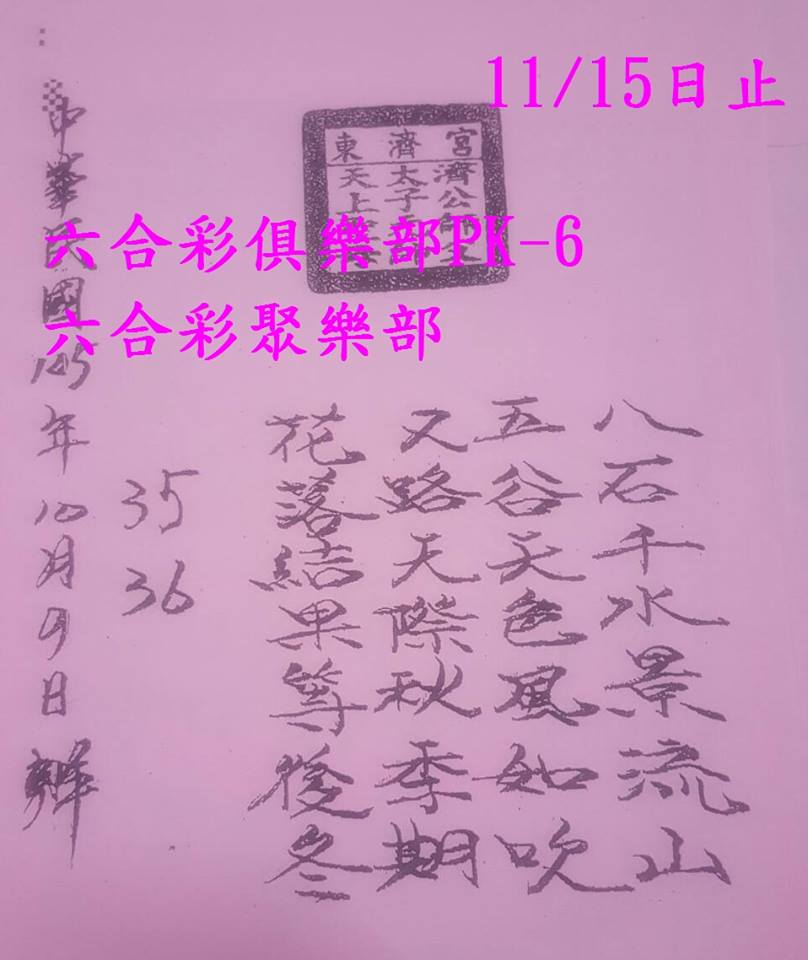 11/15日止
東濟宮
濟公
太子
天上
六合彩俱樂部PK-6
六合彩聚樂部
八石千水景流山
五谷天色風如吹
又路天際秋季期
花落結果等後冬
35
36
中華民國105年10月日